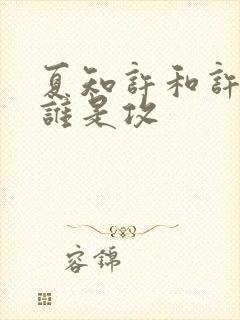 夏知許和許
誰是攻
容錦